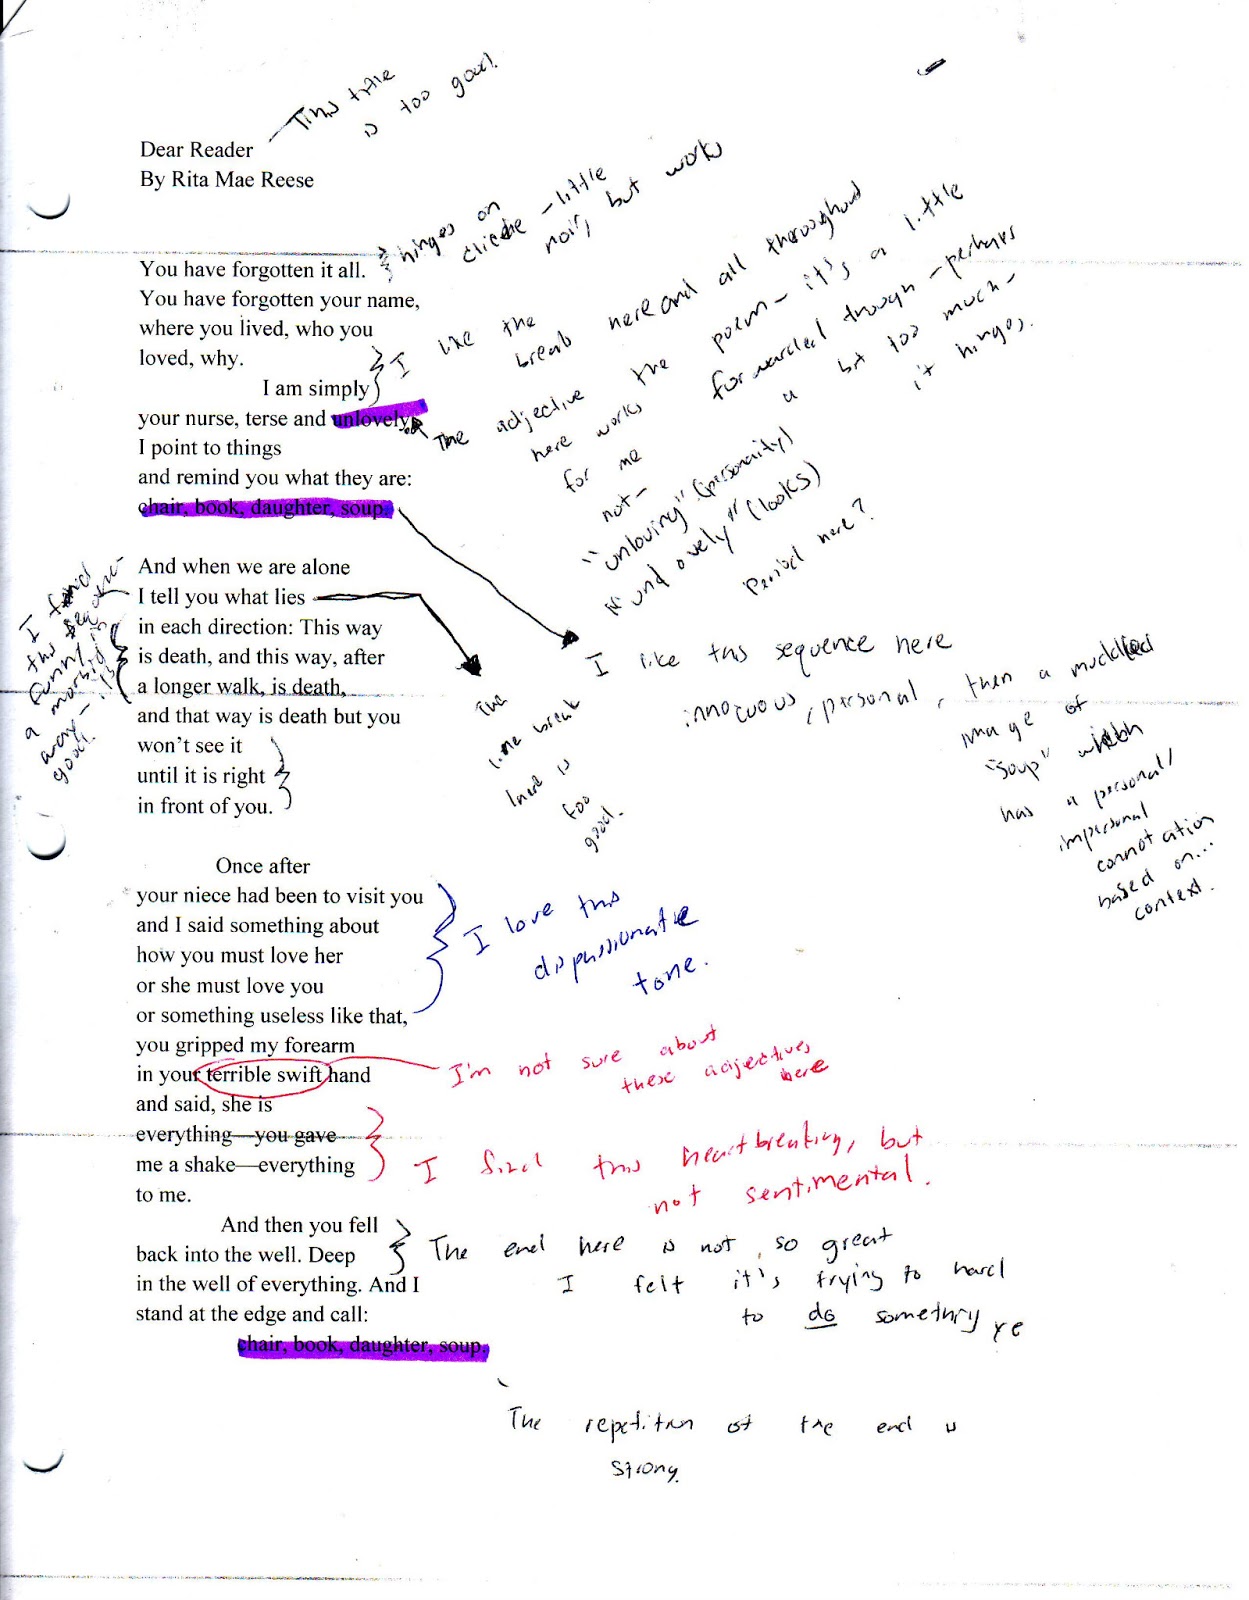 This title
is too good.
Dear Reader
By Rita Mae Reese
hinges on
cliche - little
noir, but works
You have forgotten it all.
You have forgotten your name,
where you lived, who you
loved, why.
I am simply
your nurse, terse and unlovely.
I point to things
and remind you what they are:
chair, book, daughter, soup.
I like the
break here and all throughout
the poem - it's a little
forwarded though - perhaps
a bit too much -
it hinges.
The adjective
here works
for me
not -
"unloving" (personality)
"unlovely" (looks)
Period here?
And when we are alone
I tell you what lies
in each direction: This way
is death, and this way, after
a longer walk, is death,
and that way is death but you
won't see it
until it is right
in front of you.
I find
this
funny in
a morbid
way - it's
good.
The
line break
here is
too
good.
I like this sequence here
innocuous, personal, then a muddled
image of
"soup" which
has a personal/
impersonal
connotation
based on...
context.
Once after
your niece had been to visit you
and I said something about
how you must love her
or she must love you
or something useless like that,
you gripped my forearm
in your terrible swift hand
and said, she is
everything—you gave
me a shake—everything
to me.
I love this
dispassionate
tone.
I'm not sure about
these adjectives
here
I find this heartbreaking, but
not sentimental.
And then you fell
back into the well. Deep
in the well of everything. And I
stand at the edge and call:
chair, book, daughter, soup.
The end here is not so great
I felt it's trying to hard
to do something
The repetition at the end is
strong.